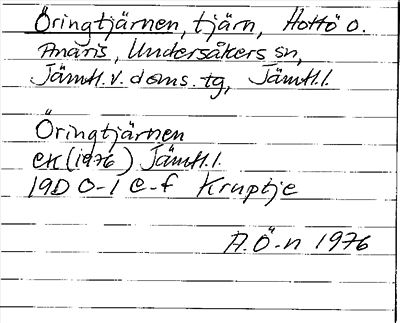 Öringtjärnen, tjärn, Hottö o.
Anaris, Undersåkers sn,
Jämtl. v. doms. tg, Jämtl. l.
Öringtjärnen
ek (1976) Jämtl. l.
19D 0-1 e-f Kruptje
A. Ö-n 1976